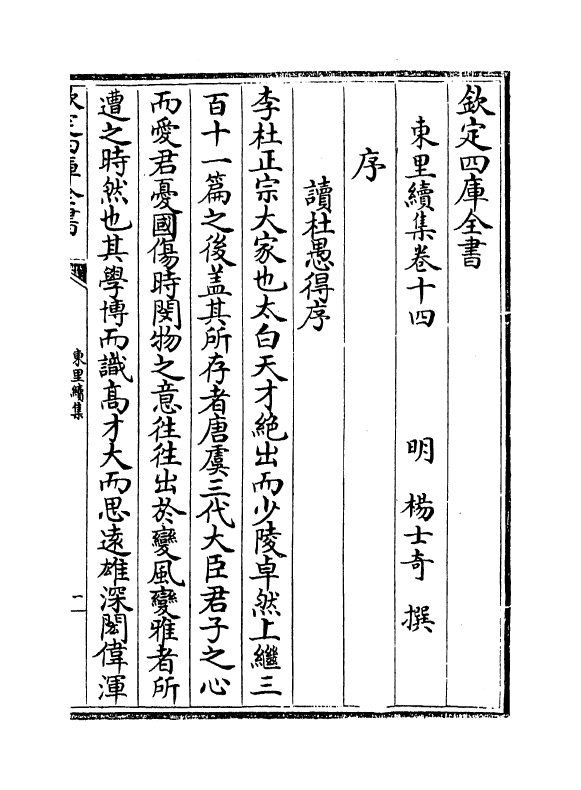 欽定四庫全書
東里續集卷十四 明 楊士奇 撰
序
讀杜愚得序
李杜正宗大家也太白天才絶出而少陵卓然上繼三
百十一篇之後盖其所存者唐虞三代大臣君子之心
而愛君憂國傷時閔物之意往往出於變風變雅者所
遭之時然也其學博而識髙才大而思逺雄深閎偉渾
欽定四庫全書
東里續集
一